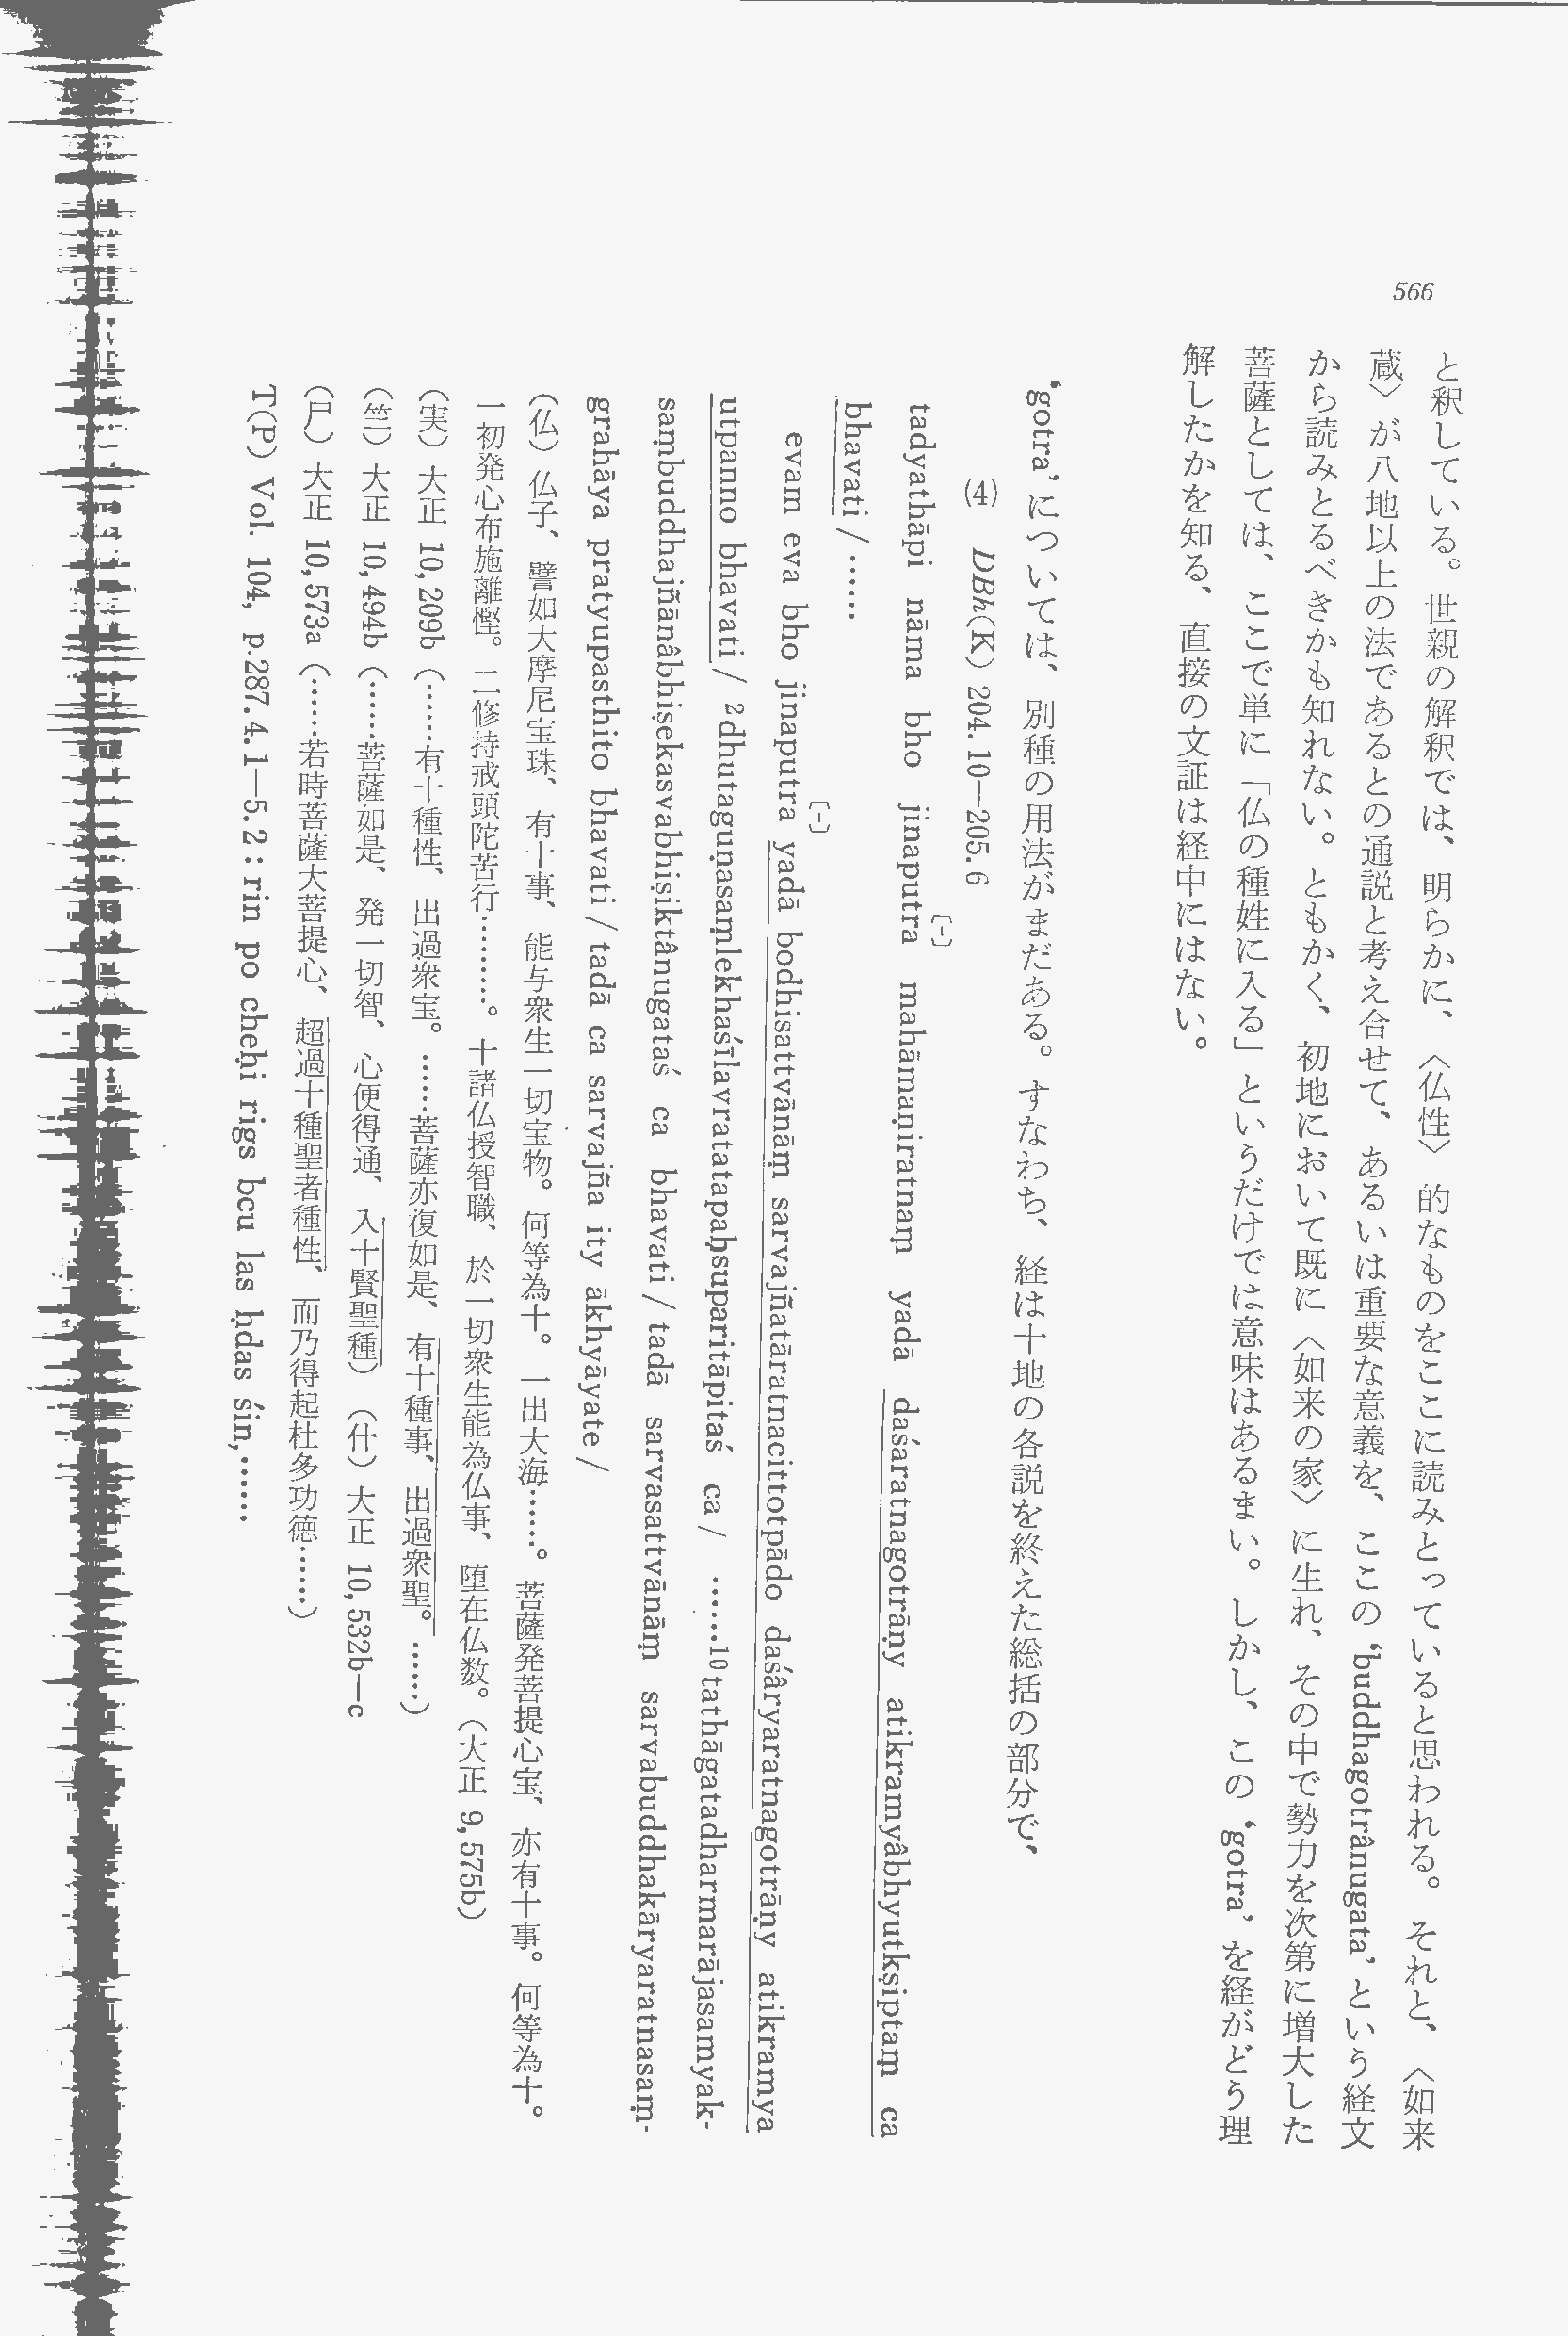 566
と釈している。世親の解釈では、明らかに、〈仏性〉的なものをここに読みとっていると思われる。それと、〈如来
蔵〉が八地以上の法であるとの通説と考え合せて、あるいは重要な意義を、ここの‘buddhagotrânugata’という経文
から読みとるべきかも知れない。ともかく、初地において既に〈如来の家〉に生れ、その中で勢力を次第に増大した
菩薩としては、ここで単に「仏の種姓に入る」というだけでは意味はあるまい。しかし、この‘gotra’を経がどう理
解したかを知る、直接の文証は経中にはない。
‘gotra’については、別種の用法がまだある。すなわち、経は十地の各説を終えた総括の部分で、
(4) DBh(K) 204.10—205.6
tadyathāpi nāma bho jinaputra〔-〕 mahāmaṇiratnaṃ yadā daśaratnagotrāṇy atikramyâbhyutkṣiptaṃ ca
bhavati / ……
evam eva bho jinaputra〔-〕 yadā bodhisattvānāṃ sarvajñatāratnacittotpādo daśâryaratnagotrāṇy atikramya
utpanno bhavati / 2dhutaguṇasaṃlekhaśīlavratatapaḥsuparitāpitaś ca / ……10tathāgatadharmarājasamyak-
saṃbuddhajñānâbhiṣekasvabhiṣiktânugataś ca bhavati / tadā sarvasattvānāṃ sarvabuddhakāryaratnasaṃ-
grahāya pratyupasthito bhavati / tadā ca sarvajña ity ākhyāyate /
（仏）仏子、譬如大摩尼宝珠、有十事、能与衆生一切宝物。何等為十。一出大海……。菩薩発菩提心宝、亦有十事。何等為十。
一初発心布施離慳。二修持戒頭陀苦行………。十諸仏授智職、於一切衆生能為仏事、堕在仏数。（大正 9,575b）
（実）大正 10,209b（……有十種性、出過衆宝。……菩薩亦復如是、有十種事、出過衆聖。……）
（竺）大正 10,494b（……菩薩如是、発一切智、心便得通、入十賢聖種）（什）大正 10,532b—c
（尸）大正 10,573a（……若時菩薩大菩提心、超過十種聖者種性、而乃得起杜多功徳……）
T(P) Vol. 104, p.287.4.1—5.2 : rin po cheḥi rigs bcu las ḥdas śin,……